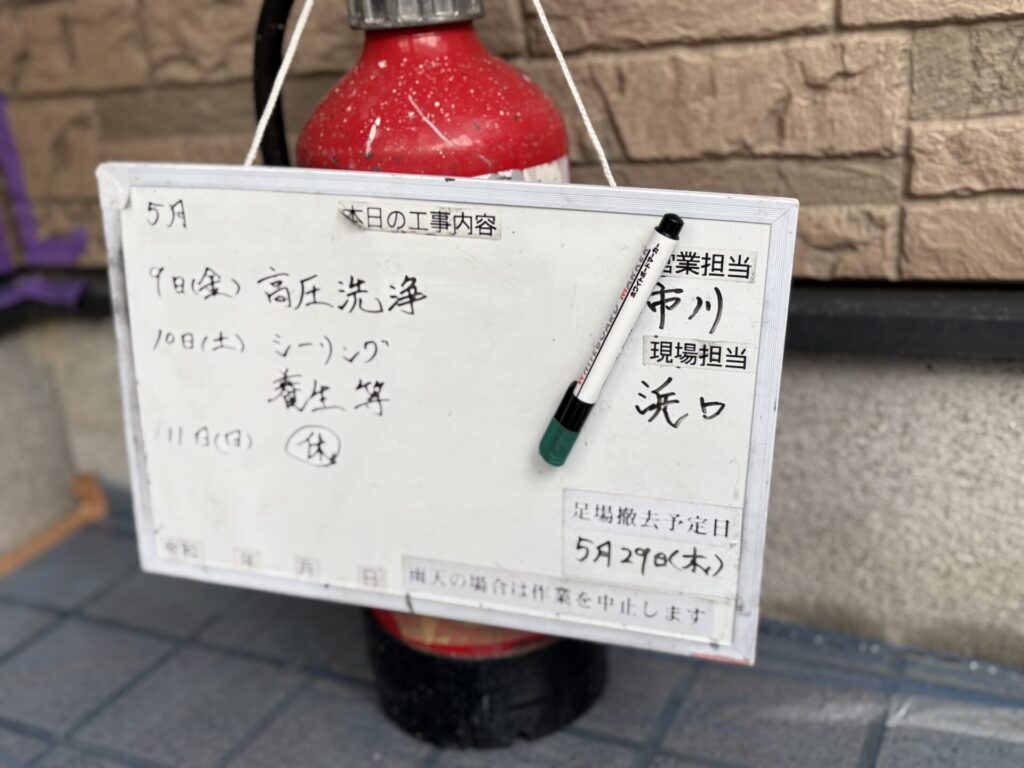 本日の工事内容
5月
9日(金) 高圧洗浄
10日(土) シーリング
養生等
11日(日) 休
営業担当
市川
現場担当
浜口
足場撤去予定日
5月29日(木)
令和 年 月 日
雨天の場合は作業を中止します